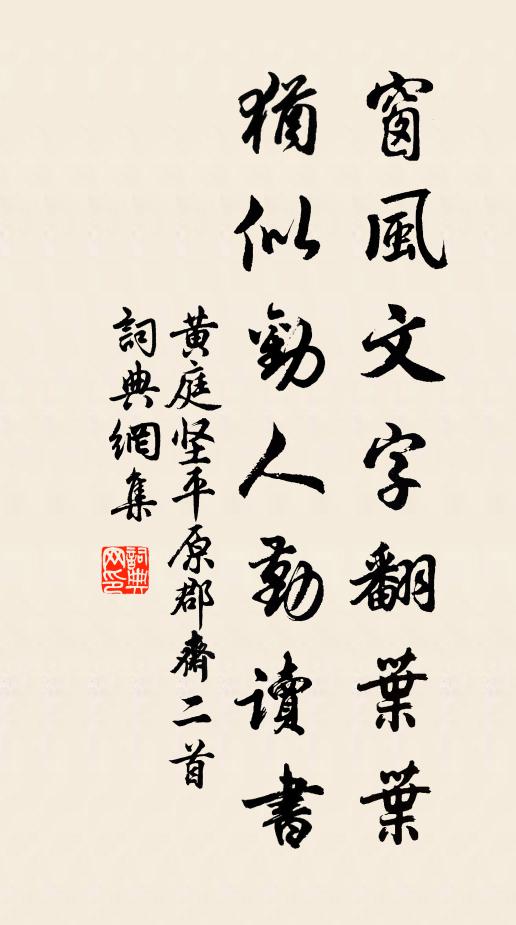 窗風文字翻葉葉
猶似勸人勤讀書
黄庭坚平原郡齋二首
詞典網集
詞典网印